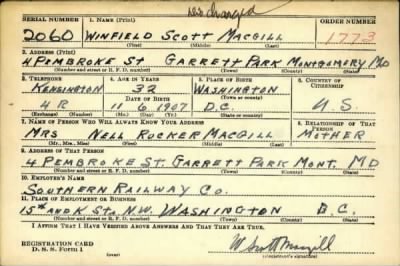 discharged
SERIAL NUMBER 1. NAME (Print) ORDER NUMBER
2060 WINFIELD SCOTT MACGILL 1773
(First) (Middle) (Last)
2. ADDRESS (Print)
4 PEMBROKE ST GARRETT PARK MONTGOMERY MD
(Number and street or R. F. D. number) (Town) (County) (State)
3. TELEPHONE 4. AGE IN YEARS 5. PLACE OF BIRTH 6. COUNTRY OF CITIZENSHIP
KENSINGTON 32 WASHINGTON
DATE OF BIRTH (Town or county)
4 R 11 6 1907 D.C. U.S.
(Mo.) (Day) (Yr.) (State or country)
7. NAME OF PERSON WHO WILL ALWAYS KNOW YOUR ADDRESS 8. RELATIONSHIP OF THAT PERSON
MRS NELL ROCKER MACGILL MOTHER
(Mr., Mrs., Miss) (First) (Middle) (Last)
9. ADDRESS OF THAT PERSON
4 PEMBROKE ST. GARRETT PARK MONT. MD
(Number and street or R. F. D. number) (Town) (County) (State)
10. EMPLOYER'S NAME
SOUTHERN RAILWAY CO.
11. PLACE OF EMPLOYMENT OR BUSINESS
15TH AND K ST. N.W. WASHINGTON D.C.
(Number and street or R. F. D. number) (Town) (County) (State)
I AFFIRM THAT I HAVE VERIFIED ABOVE ANSWERS AND THAT THEY ARE TRUE.
REGISTRATION CARD
D. S. S. Form 1
W Scott Macgill
(Registrant's signature)